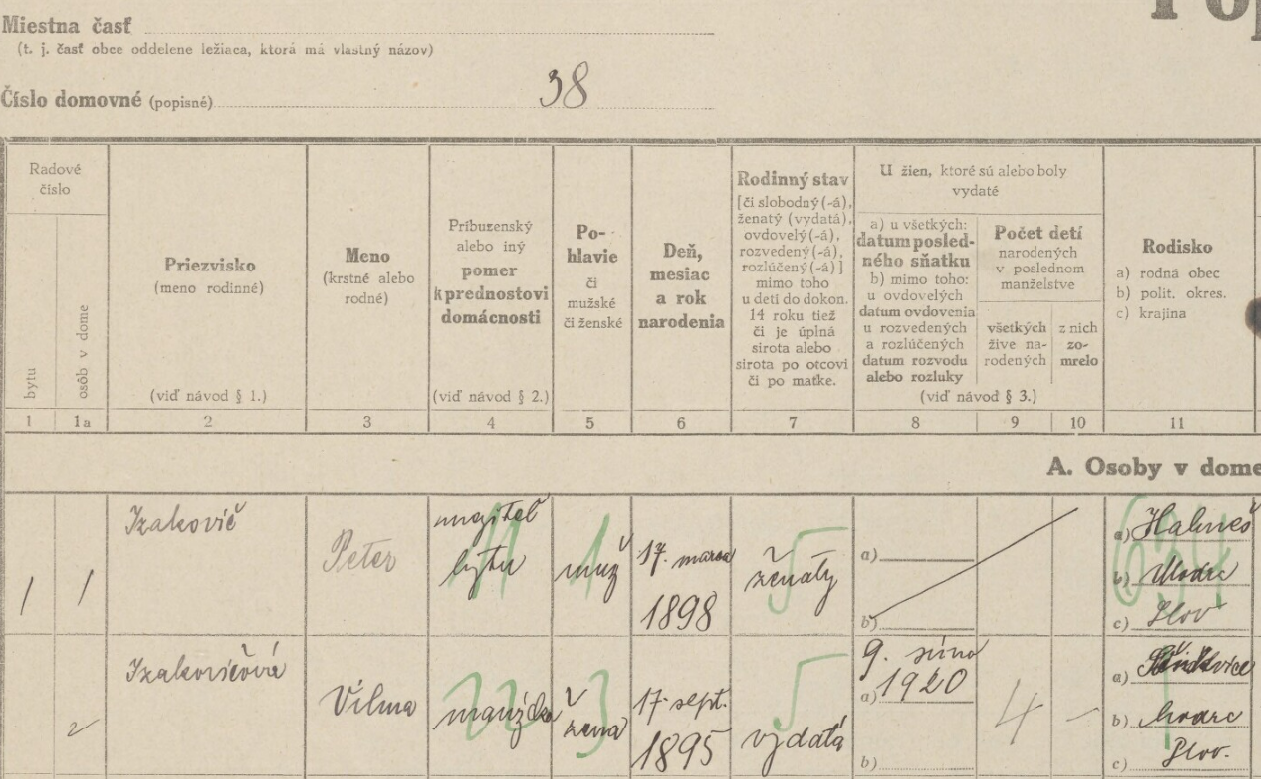 Miestna časť
(t. j. časť obce oddelene ležiaca, ktorá má vlastný názov)
Číslo domovné (popisné) 38
Radové
číslo
bytu
osôb v dome
Priezvisko
(meno rodinné)
(viď návod § 1.)
Meno
(krstné alebo
rodné)
Príbuzenský
alebo iný
pomer
k prednostovi
domácnosti
(viď návod § 2.)
Po-
hlavie
či
mužské
či ženské
Deň,
mesiac
a rok
narodenia
Rodinný stav
[či slobodný (-á),
ženatý (vydatá),
ovdovelý (-á),
rozvedený (-á),
rozlúčený (-á)]
mimo toho
u detí do dokon.
14 roku tiež
či je úplná
sirota alebo
sirota po otcovi
či po matke.
U žien, ktoré sú alebo boly
vydaté
a) u všetkých:
datum posled-
ného sňatku
b) mimo toho:
u ovdovelých
datum ovdovenia
u rozvedených
a rozlúčených
datum rozvodu
alebo rozluky
Počet detí
narodených
v poslednom
manželstve
všetkých
žive na-
rodených
z nich
zo-
mrelo
(viď návod § 3.)
Rodisko
a) rodná obec
b) polit. okres.
c) krajina
1 1a 2 3 4 5 6 7 8 9 10 11
A. Osoby v dome
1 1 Izakovič Peter
majiteľ
bytu
11
muž
1
17. marca
1898
ženatý
5
a)
b)
a)
b)
c) Slov
634
2 Izakovičová Vilma
manželka
22
žena
3
17. sept.
1895
vydatá
5
9.
a) 1920
b)
4 –
a)
b)
c) Slov.
1